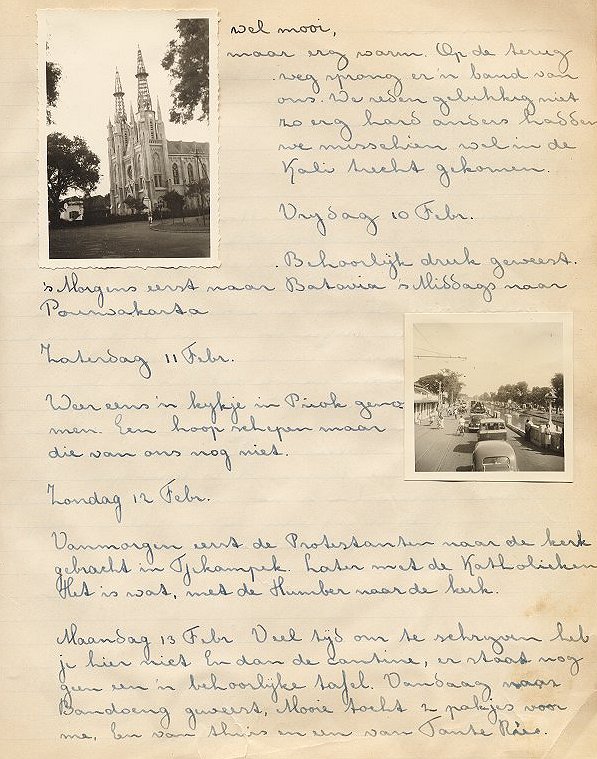 wel mooi,
maar erg warm. Op de terug
weg sprong er 'n band van
ons. We reden gelukkig niet
zo erg hard anders hadden
we misschien wel in de
Kali terecht gekomen.
Vrydag 10 Febr.
Behoorlijk druk geweest.
's Morgens eerst naar Batavia 's Middags naar
Pourwakarta
Zaterdag 11 Febr.
Weer eens 'n kykje in Priok geno
men. Een hoop schepen maar
die van ons nog niet.
Zondag 12 Febr.
Vanmorgen eerst de Protestanten naar de kerk
gebracht in Tjikampek. Later met de Katholieken
Het is wat, met de Humber naar de kerk.
Maandag 13 Febr Veel tijd om te schryven heb
je hier niet En dan de cantine, er staat nog
geen een 'n behoorlijke tafel. Vandaag naar
Bandoeng geweest, Mooie tocht 2 pakjes voor
me, Een van thuis en een van Tante Rie.